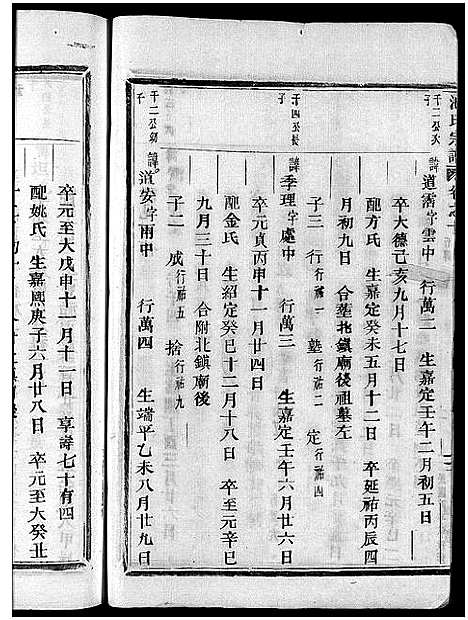 氏宗譜 卷之一
千二公次子
諱道濟字雲中 行萬二 生嘉定壬午二月初五日
卒大德己亥九月十七日
配方氏 生嘉定癸未五月十二日 卒延祐丙辰四
月初九日 合塟北鎮廟後祖墓左
子三 行福一 塾行福二 定行福四
千四公長子
諱季理字處中 行萬三 生嘉定壬午六月廿六日
卒元貞丙申十一月廿四日
配金氏 生紹定癸巳十二月十八日 卒至元辛巳
九月三十日 合附北鎮廟後
子二 成行福五 捨行福九
千二公幼子
諱道安字雨中 行萬四 生端平乙未八月廿九日
卒元至大戊申十一月十一日 享壽七十有四
配姚氏 生嘉熙庚子六月廿八日 卒元至大癸丑